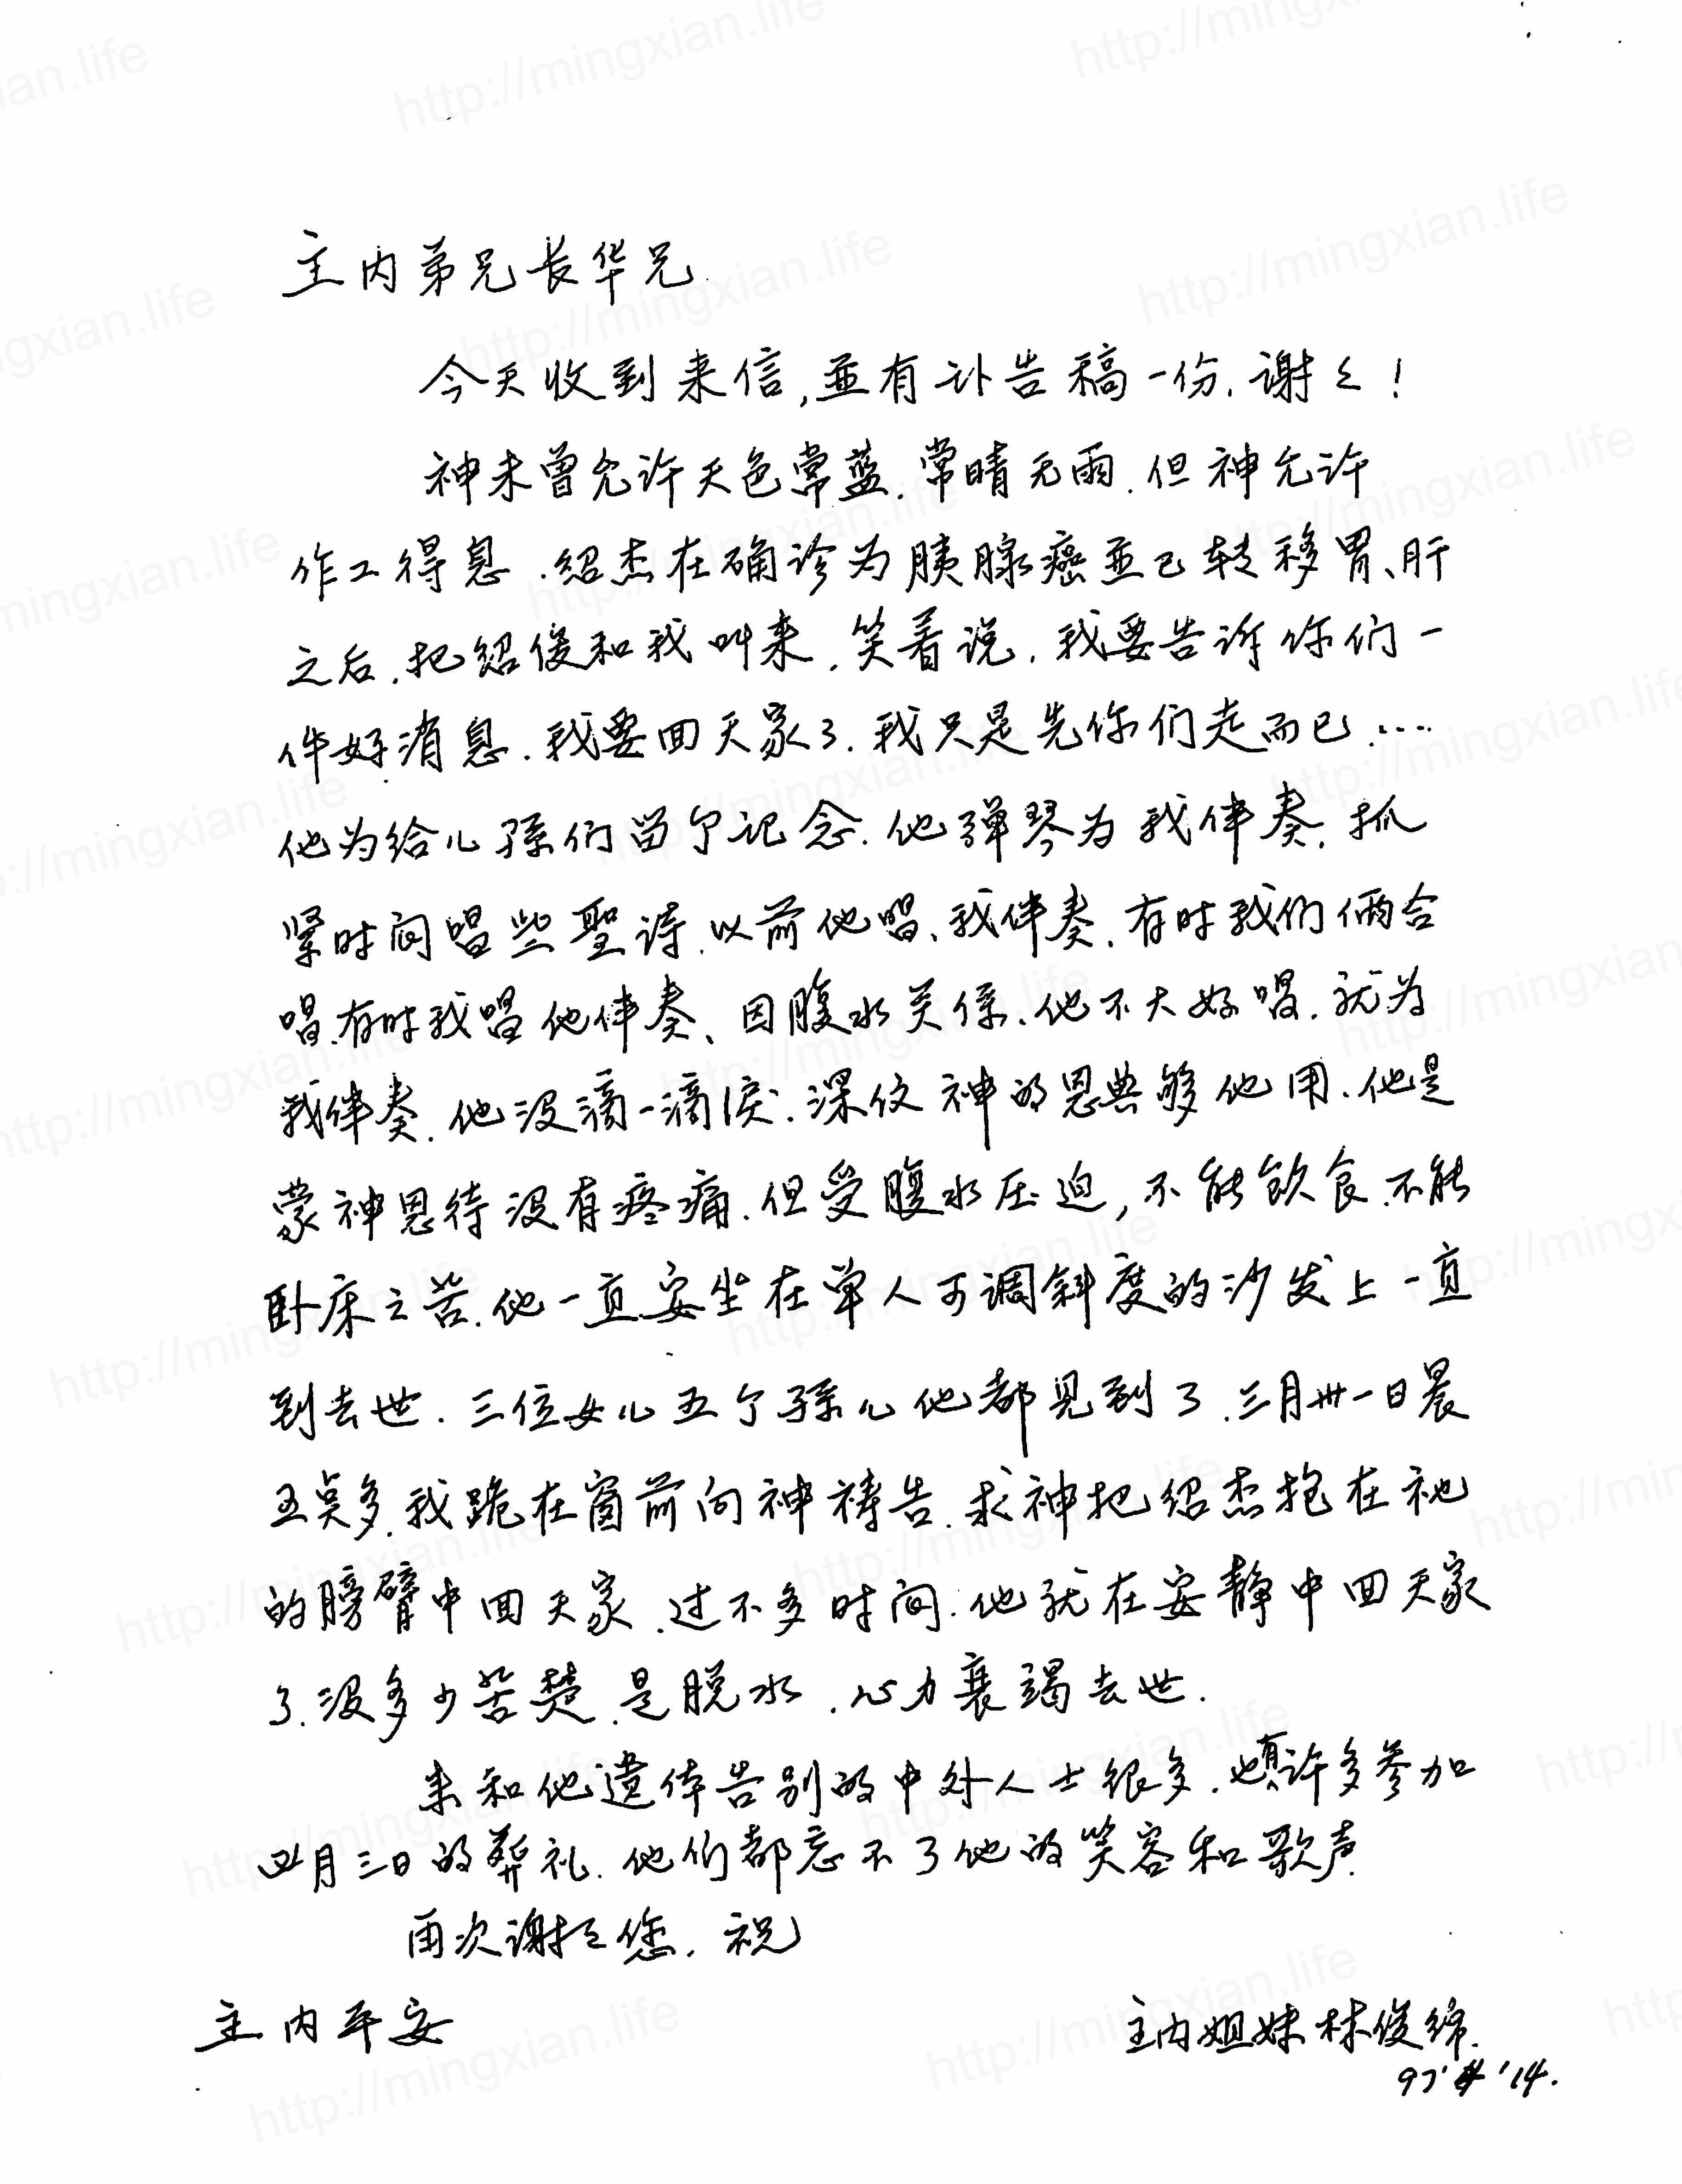 主内弟兄长华兄
今天收到来信,並有讣告稿一份.谢々!
神未曾允许天色常蓝.常晴无雨.但神允许
作工得息.绍杰在确诊为胰腺癌並已转移胃、肝
之后.把绍俊和我叫来.笑着说.我要告诉你们一
件好消息.我要回天家了.我只是先你们走而已.....
他为给儿孫们留个记念.他弹琴为我伴奏.抓
紧时间唱些聖诗.以前他唱、我伴奏.有时我们俩合
唱.有时我唱他伴奏、因腹水关係.他不大好唱.就为
我伴奏.他没滴一滴淚.深仗神的恩典够他用.他是
蒙神恩待没有疼痛.但受腹水压迫,不能飲食.不能
卧床之苦.他一直安坐在单人可调斜度的沙发上一直
到去世.三位女儿五个孫儿他都见到了.三月卅一日晨
五点多.我跪在窗前向神祷告.求神把绍杰抱在祂
的膀臂中回天家.过不多时间.他就在安静中回天家
了.没多少苦楚.是脱水.心力衰竭去世.
来和他遗体告别的中外人士很多.也有许多参加
四月三日的葬礼.他们都忘不了他的笑容和歌声.
再次谢谢您.祝
主内平安
主内姐妹林俊绵.
97'4'14.
http://mingxian.life